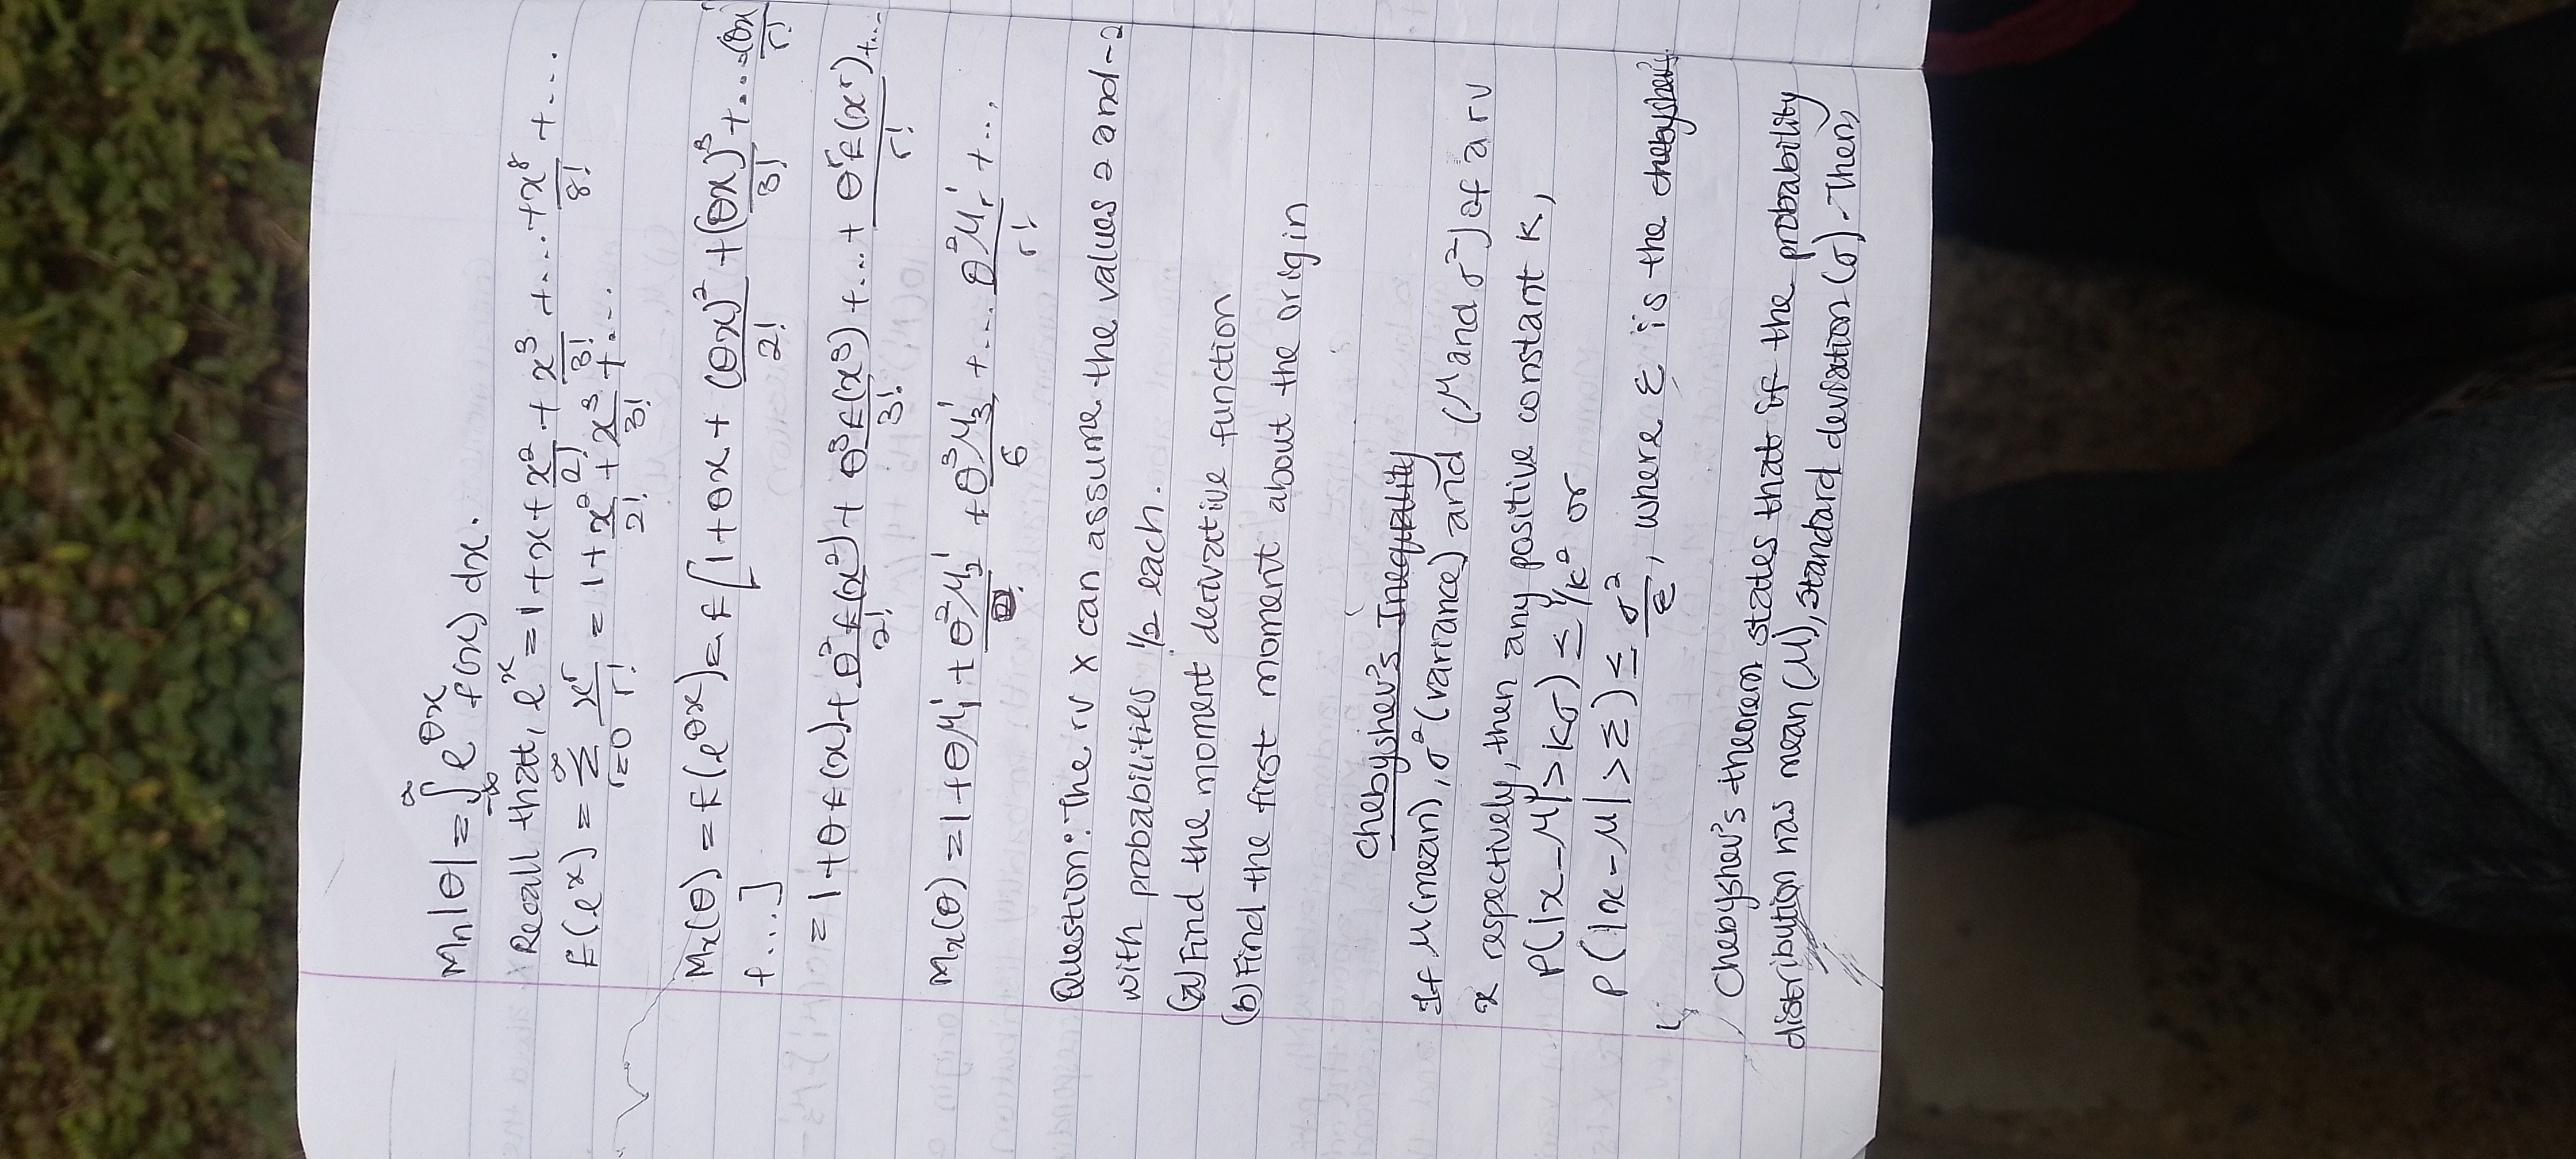 Mn|θ| = ∫_{-∞}^{∞} e^{θx} f(x) dx.
Recall that, e^x = 1 + x + x²/2! + x³/3! + ... + x⁸/8! + ...
E(e^x) = Σ_{r=0}^{∞} x^r/r! = 1 + x²/2! + x³/3! + ...
Mx(θ) = E(e^{θx}) = E[1 + θx + (θx)²/2! + (θx)³/3! + ... (θx)^r/r!
+ ...]
= 1 + θE(x) + θ²E(x²)/2! + θ³E(x³)/3! + ... + θ^rE(x^r)/r! + ...
Mx(θ) = 1 + θμ₁' + θ²μ₂'/2! + θ³μ₃'/6 + ... θ²μr'/r! + ...
Question: The rv X can assume the values 2 and -2
with probabilities 1/2 each.
(a) Find the moment derivative function
(b) Find the first moment about the origin
Chebyshev's Inequality
If μ(mean), σ²(variance) and (μ and σ²) of a rv
x respectively, then any positive constant K,
P(|x-μ|>kσ) ≤ 1/k² or
P(|x-μ|>Σ) ≤ σ²/ε, where ε is the chebyshev's
Chebyshev's theorem states that if the probability
distribution has mean (μ), standard deviation (σ). Then,